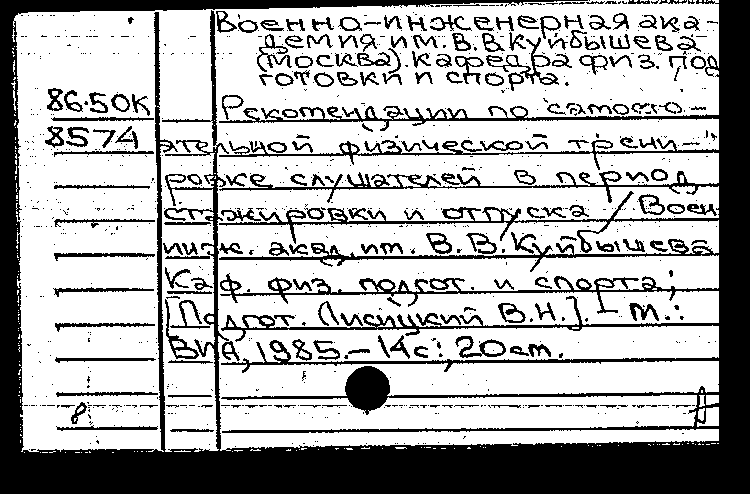 Военно-инженерная ака-
демия им. В.В. Куйбышева
(Москва). Кафедра физ. под
готовки и спорта.
86.50К Рекомендации по самосто-
8574 ятельной физической трени-
ровке слушателей в период
стажировки и отпуска / Воен
инж. акад. им. В.В. Куйбышева
Каф. физ. подгот. и спорта;
[Подгот. Лисицкий В.Н.]. - М.:
ВИА, 1985. - 14 с.; 20 см.
8